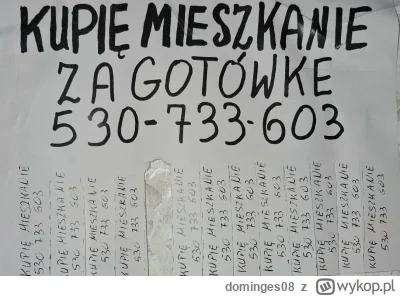 KUPIĘ MIESZKANIE
ZA GOTÓWKE
530-733-603
KUPIĘ MIESZKANIE
530 733 603
KUPIĘ MIESZKANIE
530 733 603
KUPIĘ MIESZKANIE
530 733 603
KUPIĘ MIESZKANIE
530 733 603
KUPIĘ MIESZKANIE
530 733 603
KUPIĘ MIESZKANIE
530 733 603
KUPIĘ MIESZKANIE
530 733 603
KUPIĘ MIESZKANIE
530 733 603
KUPIĘ MIESZKANIE
530 733 603
KUPIĘ MIESZKANIE
530 733 603
dominges08 z wykop.pl